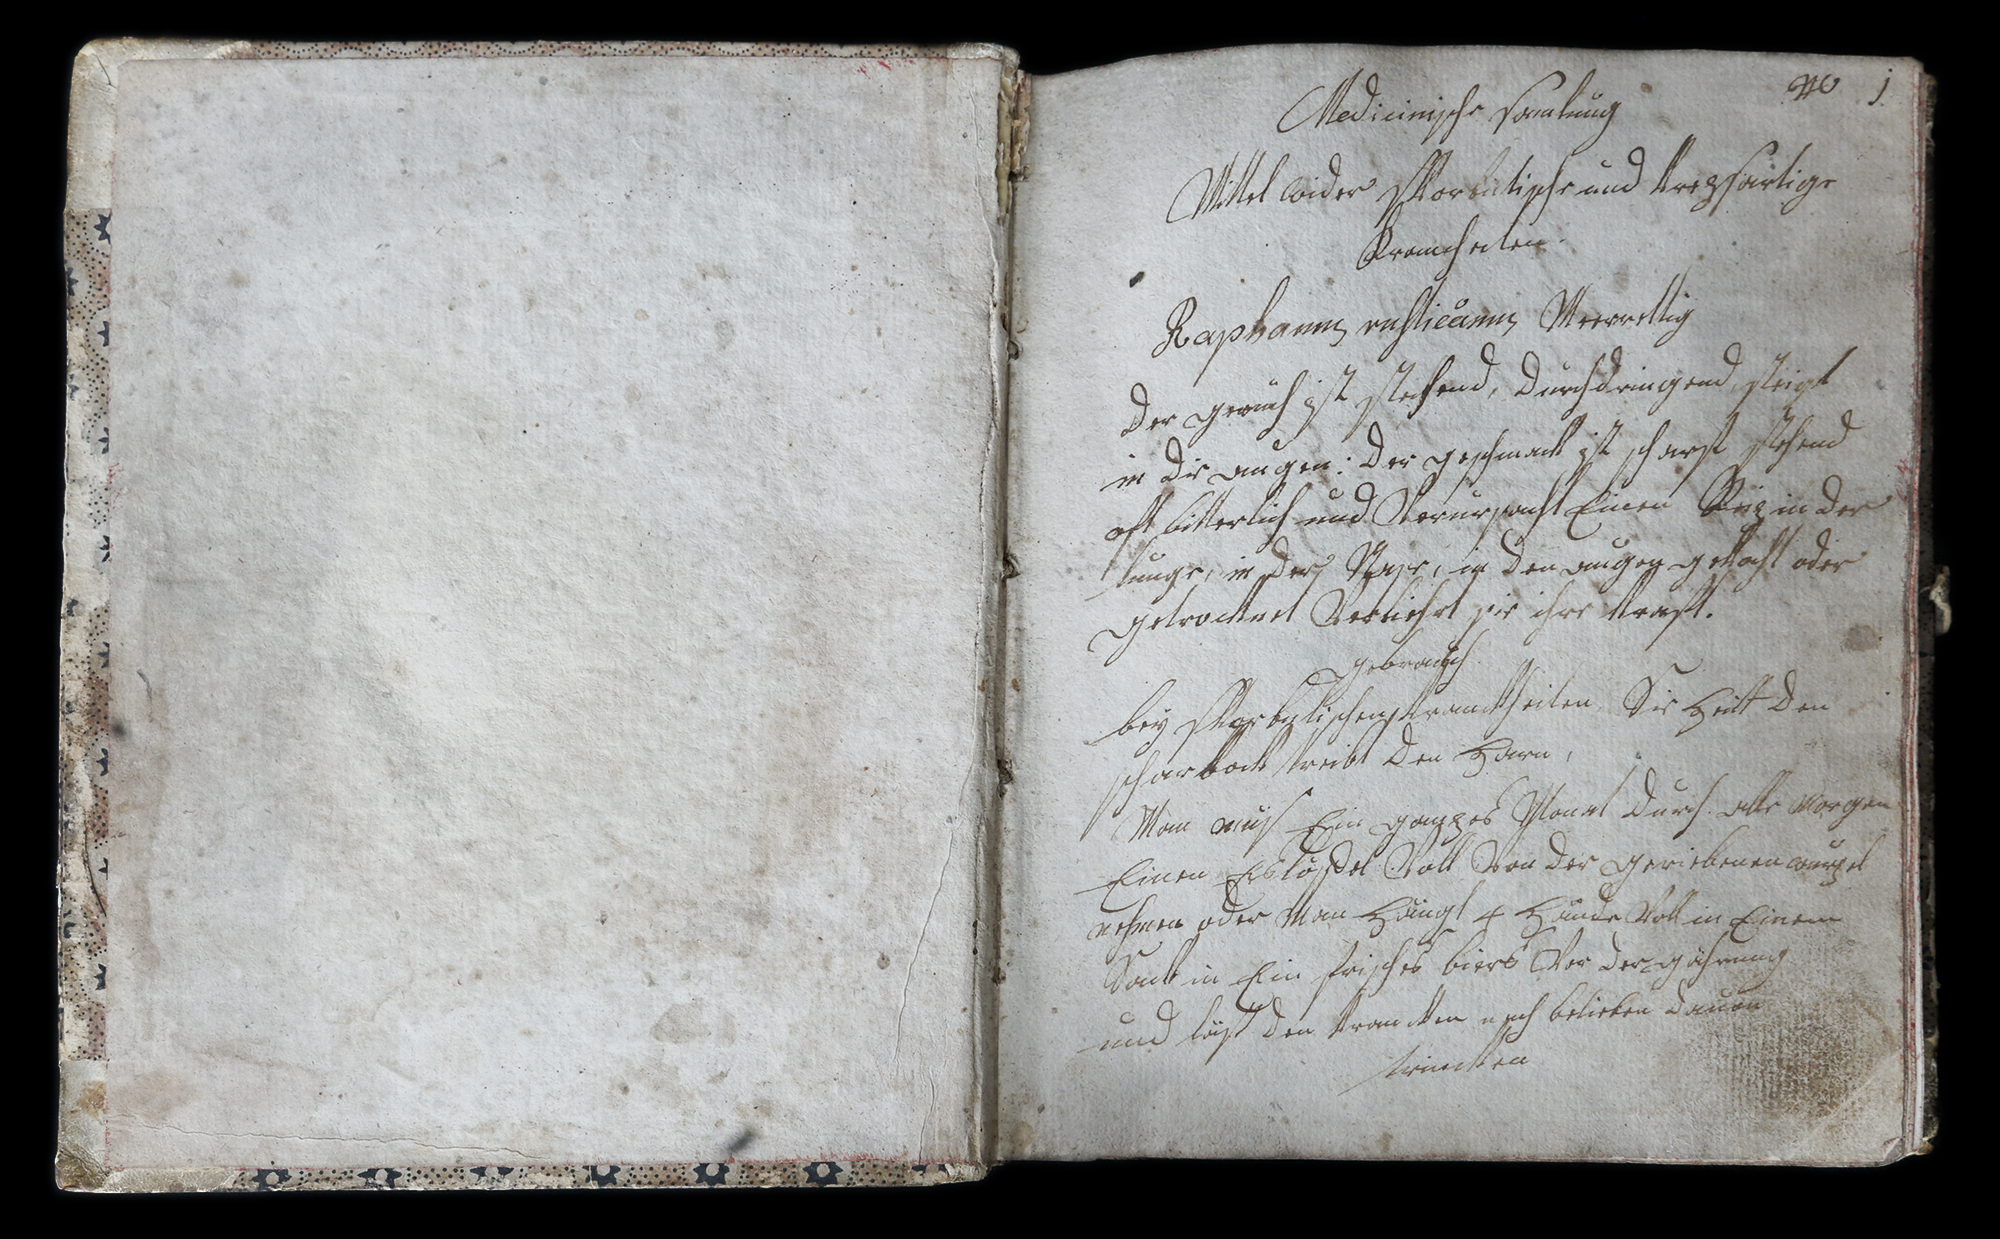 No 1
Medicinische Samlung
Mittel wider Skorbutische und Krepsartige
Krancheiten
Raphanus rusticanus Meerrettig
Der geruch ist stechend, Durchdringend, steigt
in die augen: Der geschmack ist scharf stechend
oft bitterlich und Verursacht Einen Reiz in der
lunge, in der Nase, in den augen gekocht oder
getrocknet Verliehrt sie ihre Kraft.
gebrauch
bey Skorbutischen Kranckheiten. Sie Heilt Den
scharbock treibt Den Harn,
Man mus Ein ganzes Monat durch alle Morgen
Einen Eslöffel Voll Von der geriebenen wurzel
nehmen oder Man Hängt 4 Hände Voll in Einem
Sack in Ein frisches biers Vor der gährung
und läst den Krancken nach belieben Davon
trincken